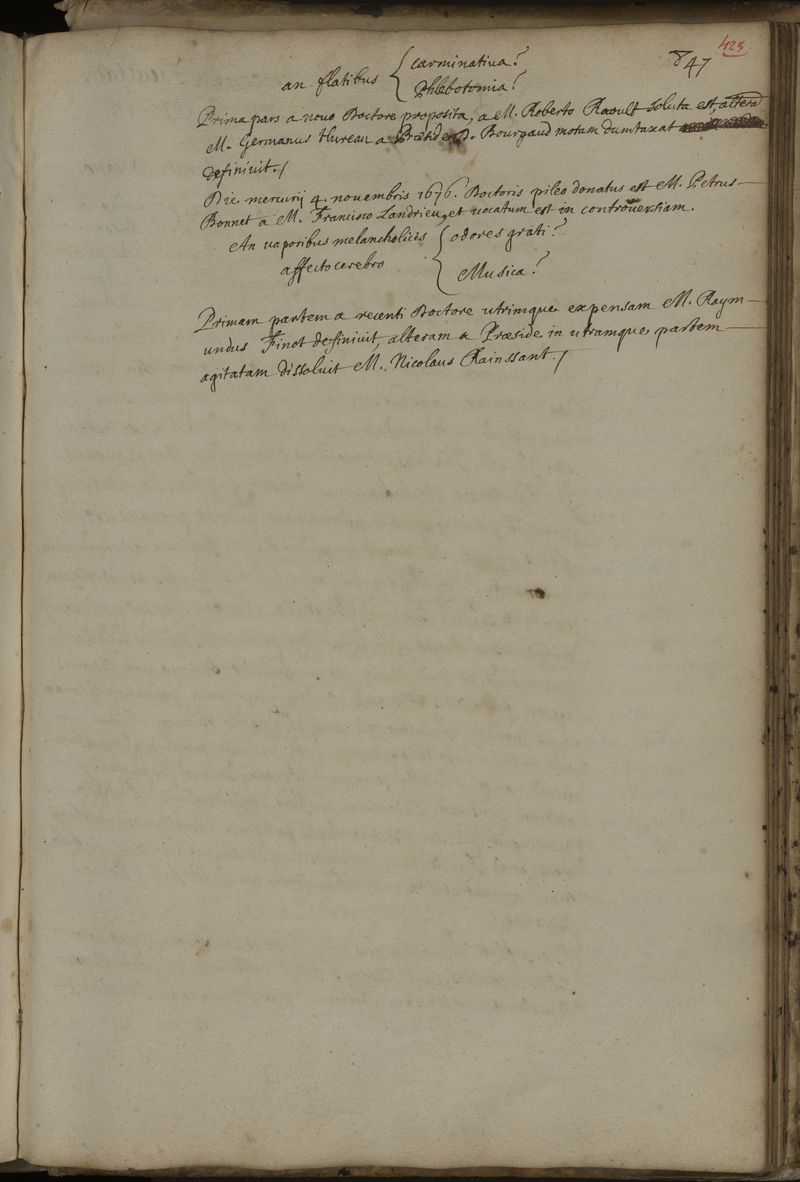 425
847
an flatibus { carminativa?
Phlebotomia?
Prima pars a novo Doctore proposita, a M. Roberto Raoult soluta est, altera
M. Germanus Hureau a Præside D. Bourgaud motam dumtaxat
definivit./
Die mercurij 4. novembris 1676. Doctoris pileo donatus est M. Petrus
Bonnet a M. Francisco Landrieu, et vocatum est in controversiam.
An vaporibus melancholicis { odores grati?
affecto cerebro
Musica?
Primam partem a recenti Doctore utrimque expensam M. Raym-
undus Finot definivit, alteram a Præside in utramque partem
agitatam dissoluit M. Nicolaus Rainssant./